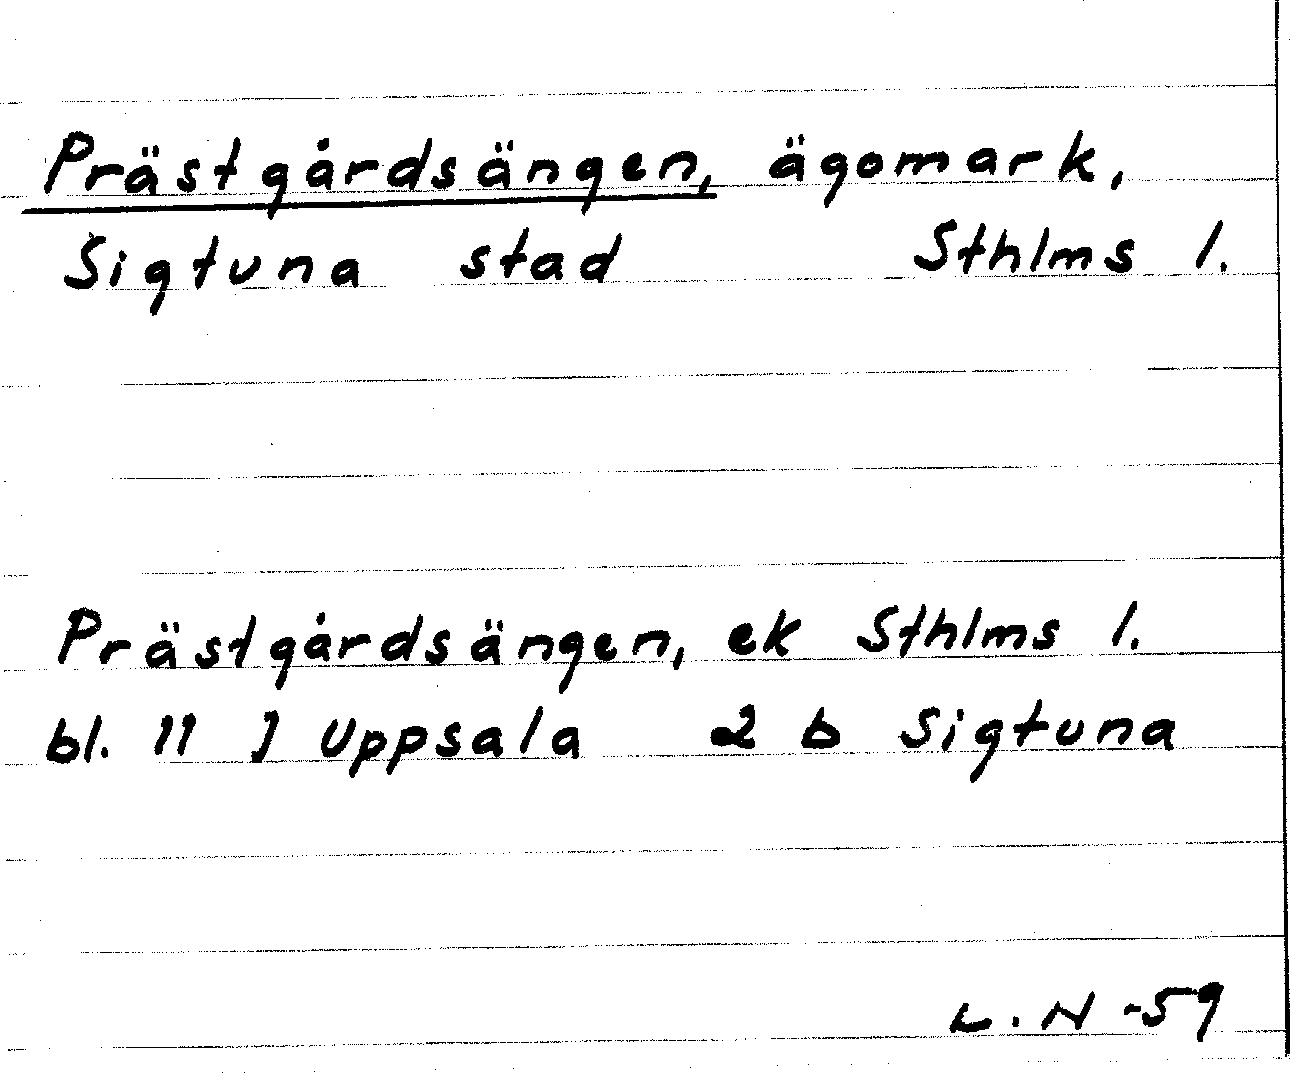 Prästgårdsängen, ägomark,
Sigtuna stad Sthlms l.
Prästgårdsängen, ek Sthlms l.
bl. 11 J Uppsala 2 b Sigtuna
L.N -59